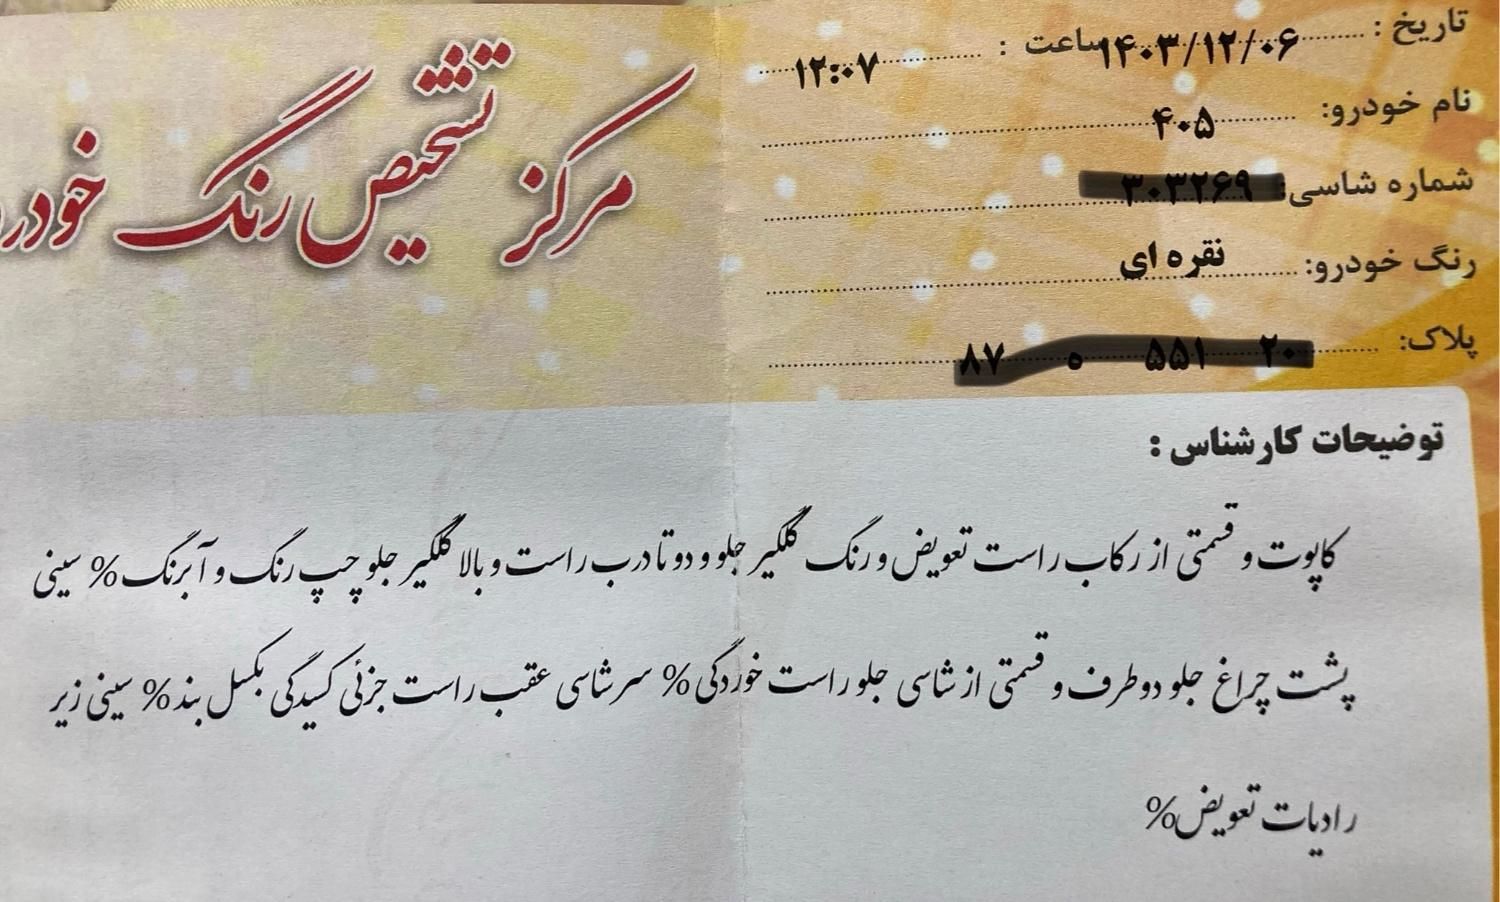 تاریخ : ۱۴۰۳/۱۲/۰۶ ساعت : ۱۲:۰۷
نام خودرو: ۴۰۵
شماره شاسی:
رنگ خودرو: نقره ای
پلاک:
مرکز تشخیص رنگ خودرو
توضیحات کارشناس :
کاپوت و قسمتی از رکاب راست تعویض و رنگ گلگیر جلو و دو تا درب راست و بالا گلگیر جلو چپ رنگ و آبرنگ% سینی
پشت چراغ جلو دو طرف و قسمتی از شاسی جلو راست خوردگی% سرشاسی عقب راست جزئی کسیدگی بکسل بند% سینی زیر
رادیات تعویض%